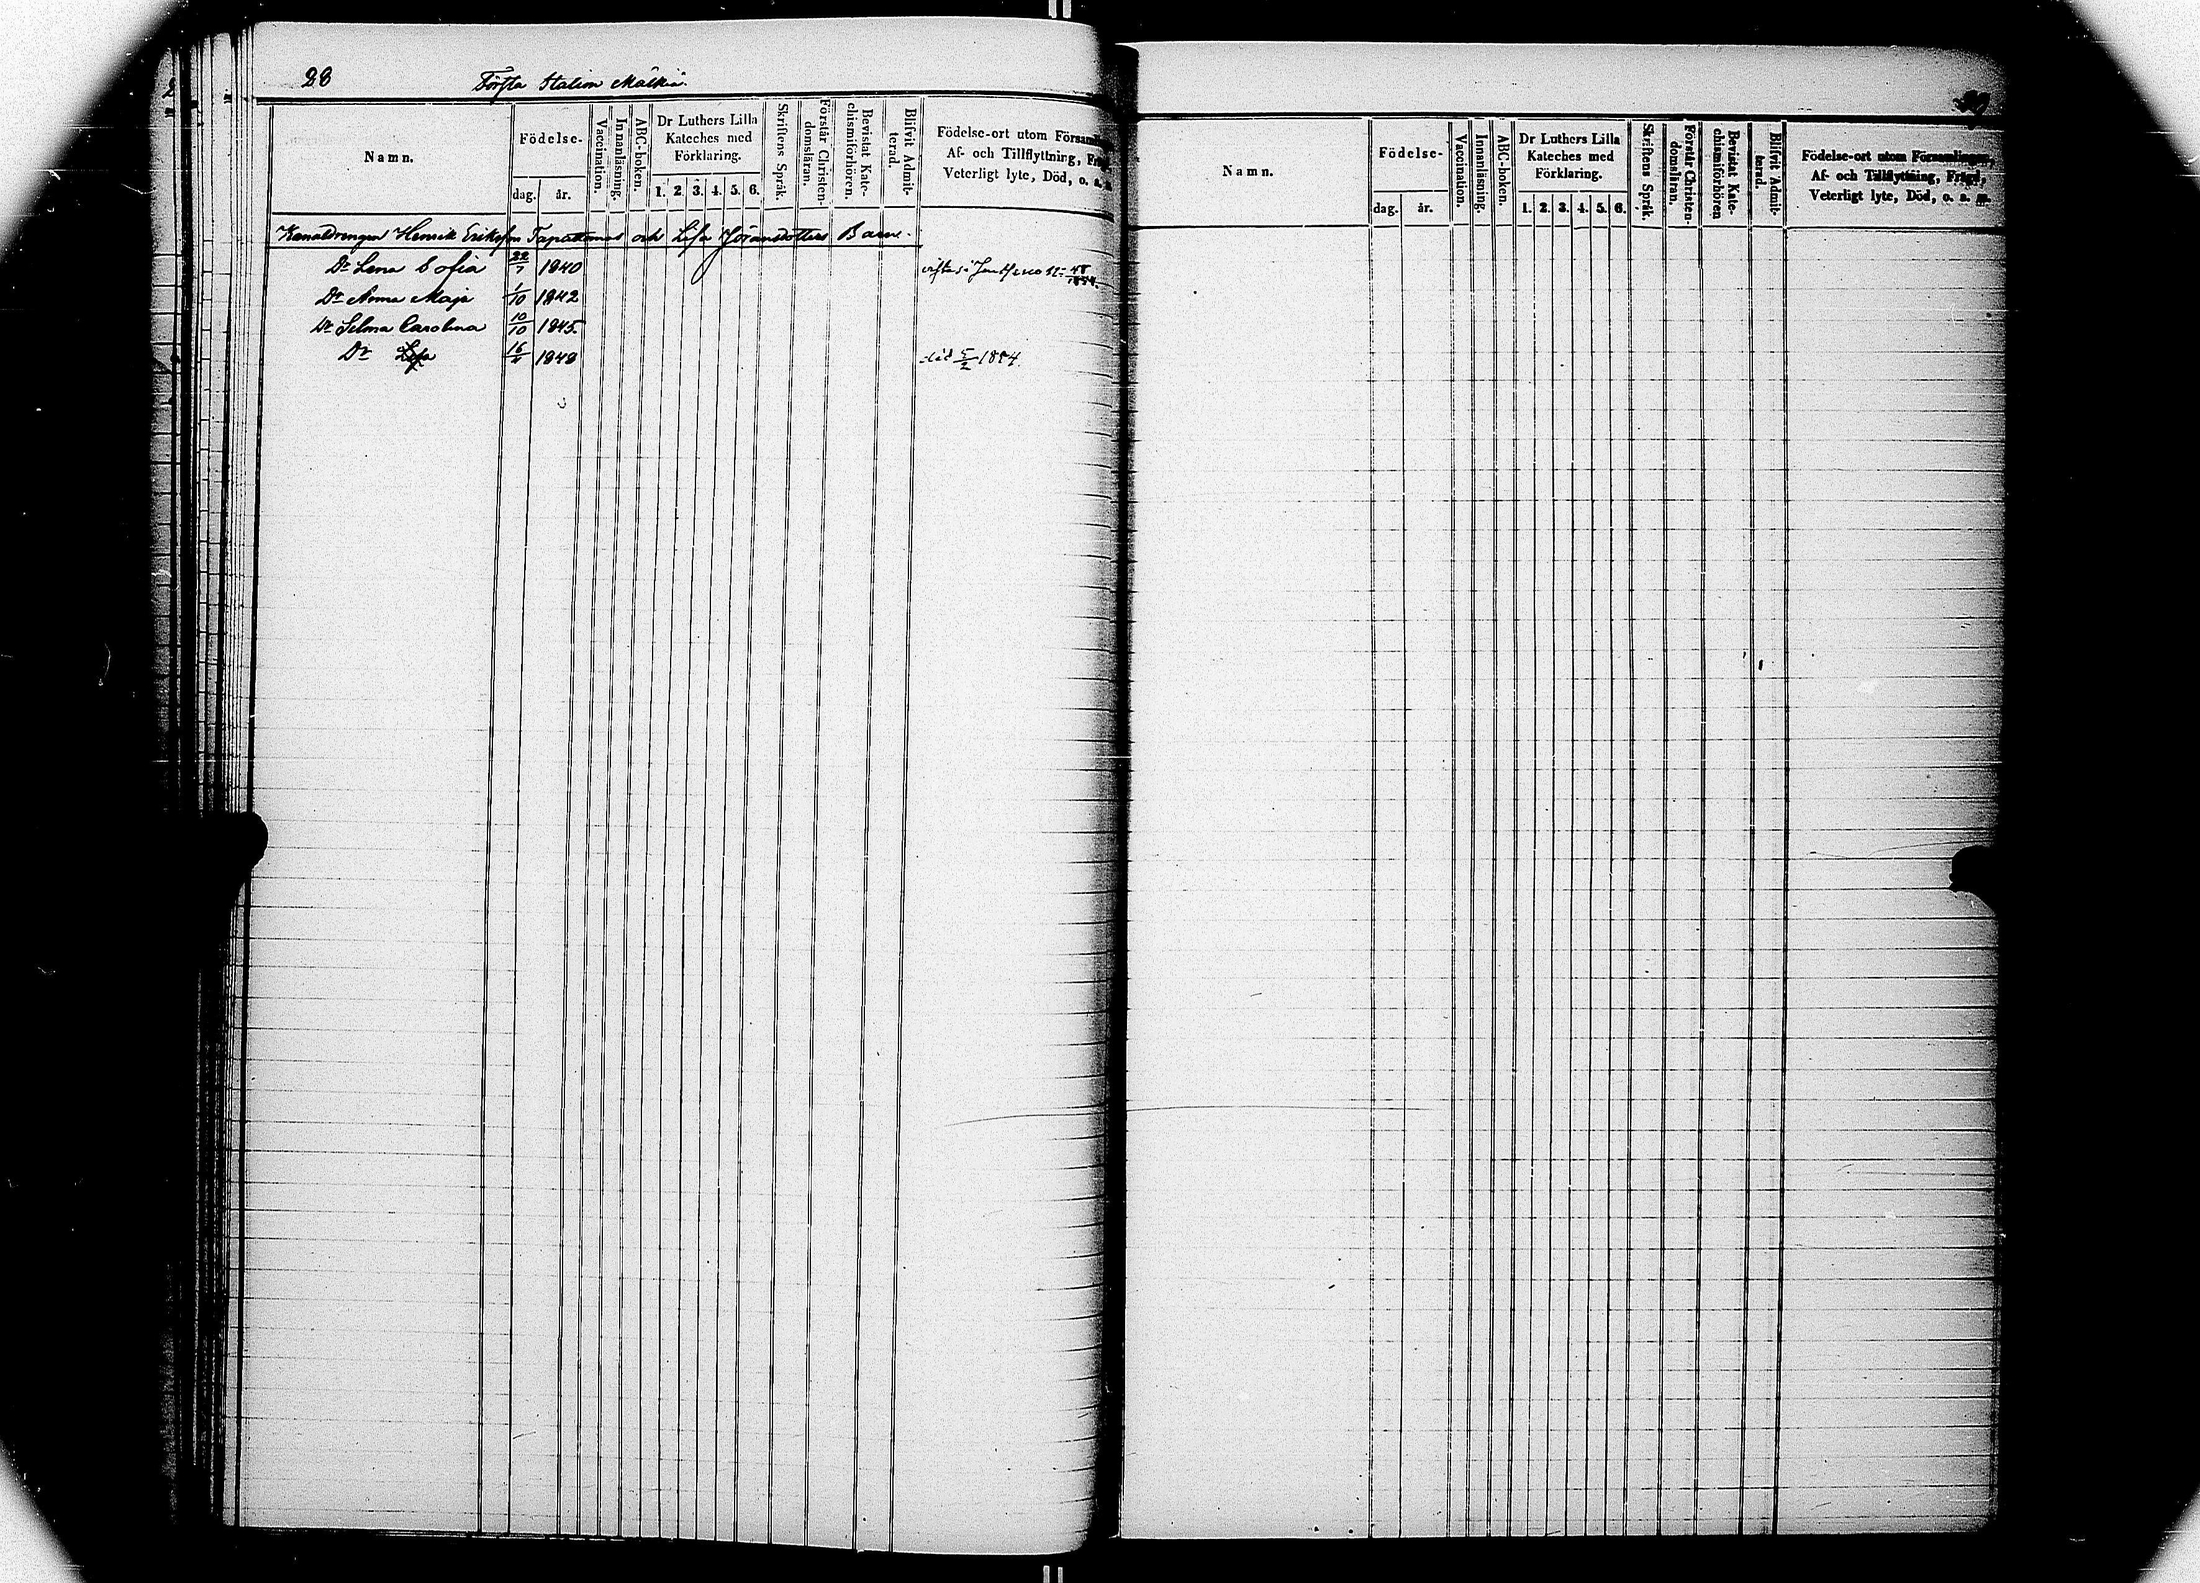 28 Förſta Station Mälkiä
Namn.
Födelse-
dag. år.
Vaccination.
Innanläsning.
ABC-boken.
Dr Luthers Lilla
Kateches med
Förklaring.
1. 2. 3. 4. 5. 6.
Skriftens Språk.
Förstår Christen-
domsläran.
Bevistat Kate-
chismiförhören.
Blifvit Admit-
terad.
Födelse-ort utom
Af- och Tillflyttning,
Veterligt lyte, Död, o. s.
Kanaldrengen Henrik Erikſſon och Liſa Jöransdotters Barn.
Dr Lena Sofia 22/7 1840
Dr Anna Maja 1/10 1842
Dr Selma Carolina 10/10 1845.
Dr Liſa 16/4 1848 död 5/2 1854.
Namn.
Födelse-
dag. år.
Vaccination.
Innanläsning.
ABC-boken.
Dr Luthers Lilla
Kateches med
Förklaring.
1. 2. 3. 4. 5. 6.
Skriftens Språk.
Förstår Christen-
domsläran.
Bevistat Kate-
chismiförhören
Blifvit Admit-
terad.
Födelse-ort utom Församlingen,
Af- och Tillflyttning, Frägd,
Veterligt lyte, Död, o. s. m.